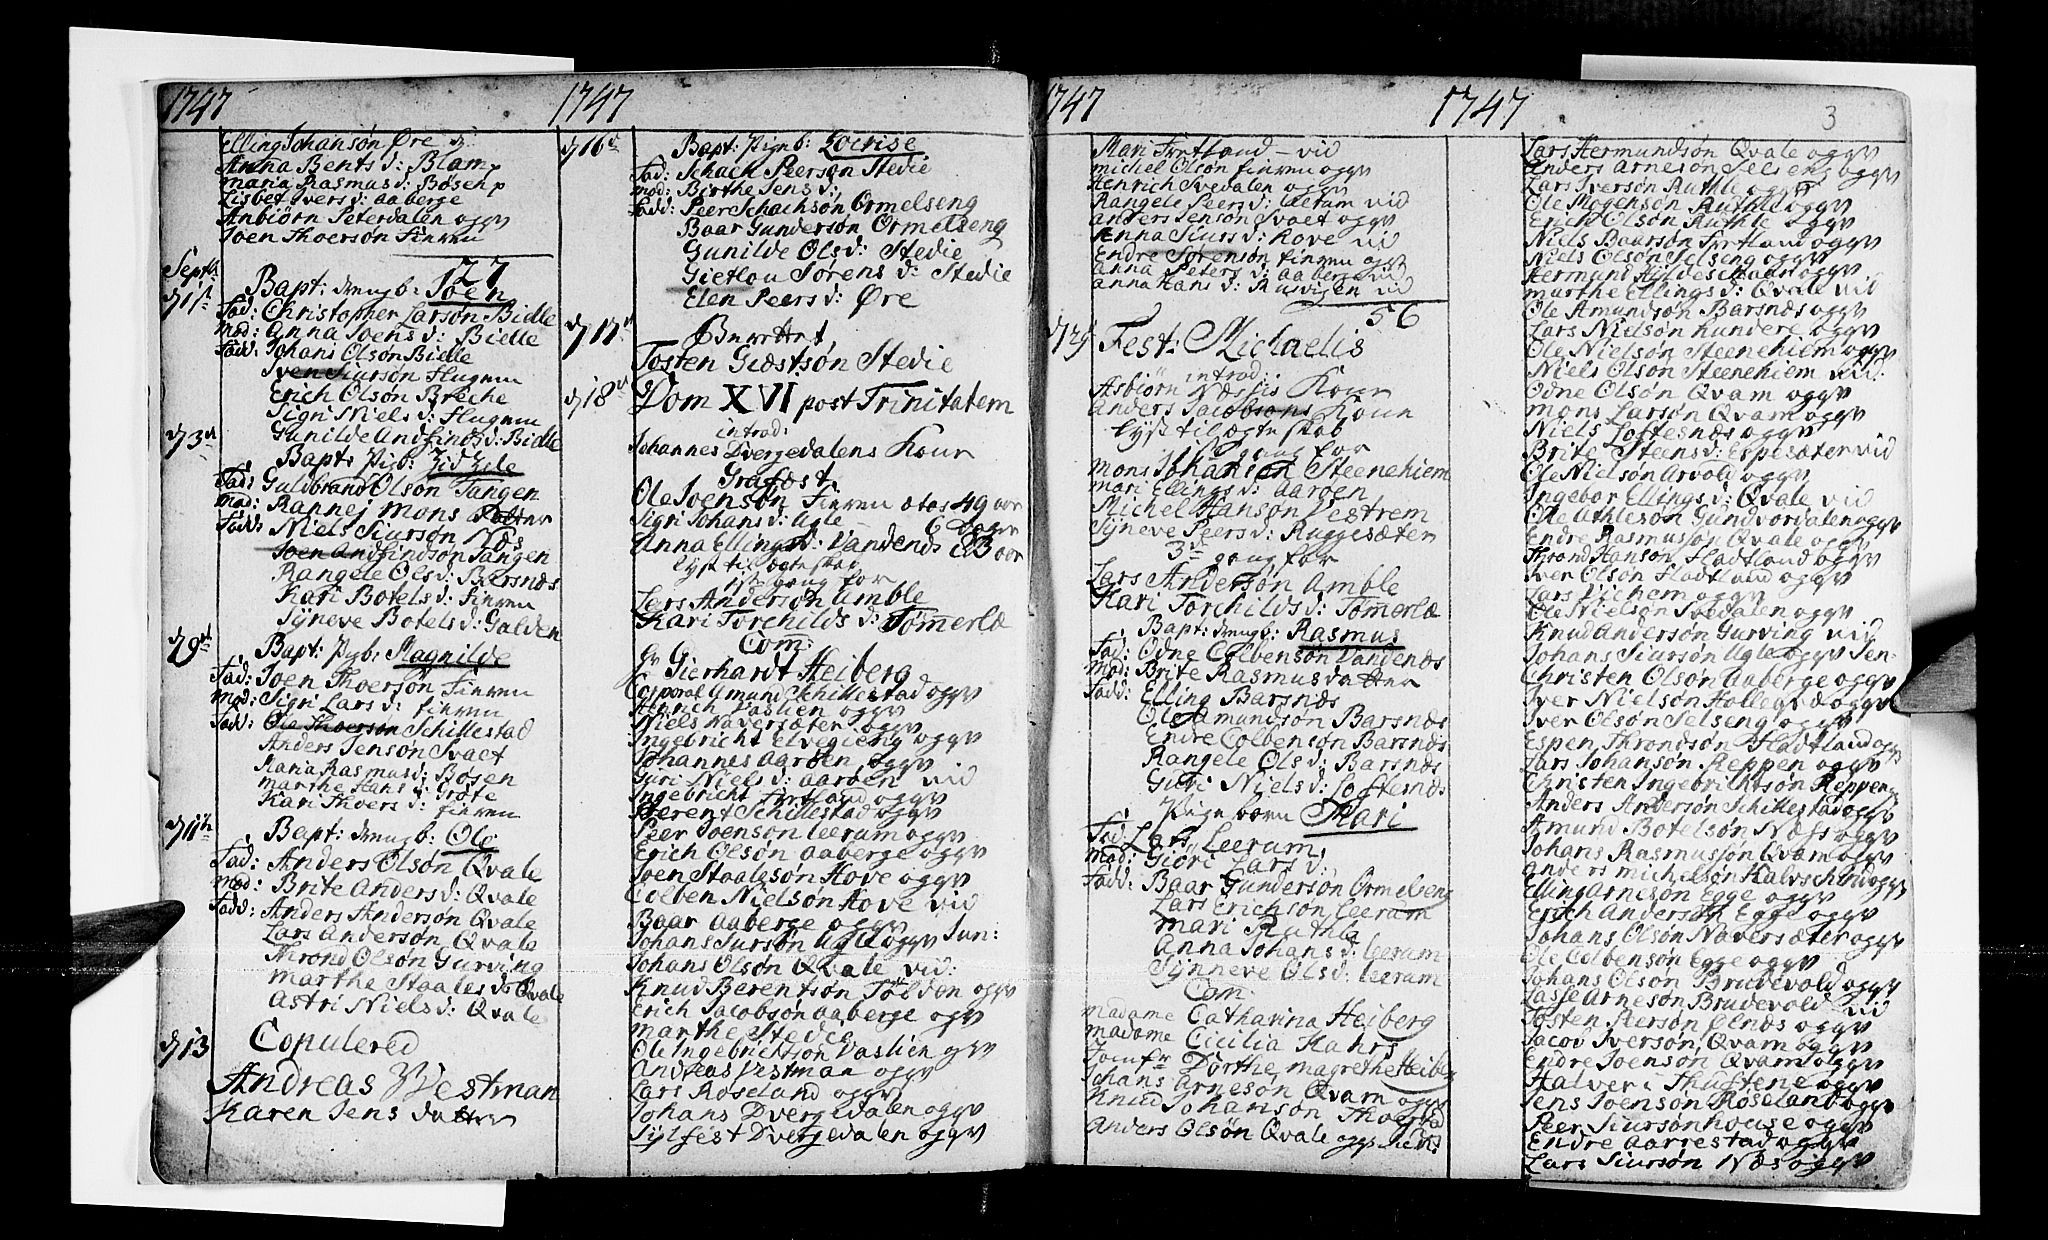 1747
Elling Johansøn Øre
Anna Bents d: Blam
Maria Rasmus d: Bøsen
Lisbet Ivers d: Aaberge
Anbiørn Peterdalen oggv
Joen Thoersøn Finren
27
Sept:
d 1
Bapt: drengb: Joen
Fad: Christopher Larsøn Bielle
Mod: Anna Joens d: Bielle
Fadd: Johans Olsøn Bielle
Iven Siursøn Flugem
Erich Olsøn Breche
Sigri Niels d: Flugem
Gunilde Andfinds d: Bielle
d 3
Bapt: Pigb:
Fad: Guldbrand Olsøn Tangen
Mod: Rannej Mons datter
Fadd: Niels Siursøn Næs
Joen Andfindsøn Tangen
Rangele Ols d: Barsnæs
Kari Botels d: Finren
Syneve Botels d: Galden
d 9
Bapt: Pigb: Magnilde
Fad: Joen Thoersøn Finren
Mod: Sigri Lars d: Finren
Fadd: Ole Thoersøn Schillestad
Anders Jensøn Svaet
Maria Rasmus d: Bøsen
Marthe Hans d: Grote
Kari Thoers d: Finren
d 11
Bapt: drengb: Ole
Fad: Anders Olsøn Qvale
Mod: Brite Anders d: Qvale
Fadd: Anders Andersøn Qvale
Lars Andersøn Qvale
Thrond Olsøn Gurving
Marthe Staales d: Qvale
Astri Niels d: Qvale
d 13
Copulered
Andreas Westman
Karen Jens datter
1747
d 16
Bapt: Pigeb: Lovise
Fad: Schach Peersøn Stedie
Mod: Birthe Jens d:
Fadd: Peer Schachsøn Ormelseng
Baar Gundersøn Ormelseng
Gunilde Ols d: Stedie
Gietlou Sørens d: Stedie
Elen Peers d: Øre
d 17
Berettet
Tosten Giæstsøn Stedie
d 18
Dom XVI post Trinitatem
introd:
Johannes Dvergedalens Kone
Grafæst
Ole Joensøn Finren otos 49 aar
Sigri Johans d: Ugle 6 Dage
Anna Ellings d: Vandends 23 aar
Lyst til ægteskab
1ste gang for
Lars Andersøn Amble
Kari Torchilds d: Tømmerlæ
Com:
Hr Gierhardt Heiberg
Corporal Amund Schillestad oggv
Henrich Vaslien oggv
Niels Naversæter oggv
Ingebricht Elvegieng oggv
Johannes Aarøen oggv
Guri Niels d: Aarøen vid
Ingebricht Fretland oggv
Berent Schillestad oggv
Peer Joensøn Leerum oggv
Erich Olsøn Aaberge oggv
Joen Staalesøn Hove oggv
Colben Nielsøn Hove vid
Baar Aaberge oggv
Johans Siursøn Ugle oggv Jun:
Johans Olsøn Qvale vid:
Knud Berentsøn Tølden oggv
Erich Jacobsøn Aaberge ogv
Marthe Stedie
Ole Ingebrichtsøn Vaslien ogv
Andreas Vestman oggv
Lars Røseland oggv
Johans Dvergedalen oggv
Sylfest Dvergedalen oggv
1747
Mari Fretland - vid
Michel Olsøn Finren oggv
Henrich Svedalen oggv
Rangele Peers d: Leerum vid
Anders Jensøn Svaet oggv
Anna Siurs d: Hove vid
Endre Sørensøn Finren oggv
Anna Peters d: Aaberge vid
Anna Hans d: Rusvigen vid
56
d 29
Fest: Michaelis
introd:
Asbiørn Næssis Kone
Anders Jacobsøns Kone
Lyst til ægteskab
gang for
Mons Johansøn Steenehiem
Mari Ellings d: Aarøen
Michel Hansøn Vestrem
Synneve Peers d: Ruggesæter
3die gang for
Lars Andersøn Amble
Kari Torchilds d: Tømerlæ
Bapt: drengb: Rasmus
Fad: Odne Colbensøn Vandends
Mod: Brite Rasmusdatter
Fadd: Elling Barsnæs
Ole Amundsøn Barsnæs
Endre Colbensøn Barsnæs
Rangele Ols d: Barsnæs
Guri Niels d: Loftesnæs
Pigebarn Mari
Fad: Lars Leerum
Mod: Giøri Lars d:
Fadd: Baar Gundersøn Ormelseng
Lars Erichsøn Leerum
Mari Ruthle
Anna Johans d: Leerum
Synneve Ols d: Leerum
Com:
Madame Catharina Heiberg
Madame Cicilia Hahrs
Jomfr Dorthe Magrethe Heiberg
Johans Arnesøn Qvam oggv
Knud Johansøn Thorstad
Anders Olsøn Qvale oggv Sen:
1747
3
Lars Hermundsøn Qvale oggv
Anders Arnesøn Selseng oggv
Lars Iversøn Ruthle oggv
Ole Mogensøn Ruthle oggv
Erich Olsøn Ruthle oggv
Niels Baarsøn Fretland oggv
Niels Olsøn Selseng oggv
Hermund Hyldeschaar oggv
Marthe Ellings d: Qvale vid
Ole Amundsøn Barsnæs oggv
Lars Nielsøn Hundere oggv
Ole Nielsøn Steenehiem oggv
Niels Olsøn Steenehiem vid:
Odne Olsøn Qvam oggv
Mons Larsøn Qvam oggv
Niels Loftesnæs oggv
Brite Steens d: Espesæter vid
Ole Nielsøn Arvold oggv
Ingebor Ellings d: Qvale vid
Ole Athlesøn Gundvordalen oggv
Endre Rasmussøn Qvale oggv
Thrond Hansøn Fladtland oggv
Iver Olsøn Fladtland oggv
Lars Vichem oggv
Ole Nielsøn Svedalen oggv
Knud Andersøn Gurving vid
Johans Siursøn Ugle oggv Sen:
Christen Olsøn Aaberge oggv
Iver Nielsøn Hollegvæ oggv
Iver Olsøn Selseng oggv
Espen Throndsøn Fladtland oggv
Lars Johansøn Reppen oggv
Christen Ingebrichtsøn Reppen
Anders Andersøn Schillestad oggv
Amund Botelsøn Næss oggv
Johans Rasmussøn Qvam oggv
Anders Michelsøn Kalvschind oggv
Elling Arnesøn Egge oggv
Erich Andersøn Egge oggv
Johans Olsøn Naversæter oggv
Ole Colbensøn Egge oggv
Johans Olsøn Brudevold oggv
Lasse Arnesøn Brudevold vid
Tosten Peersøn Ølnæs oggv
Jacob Iversøn Qvam oggv
Endre Joensøn Qvam oggv
Halver i Thustene oggv
Jens Joensøn Røseland oggv
Peer Siursøn house oggv
Endre Aarrestad oggv
Lars Siursøn Næs oggv